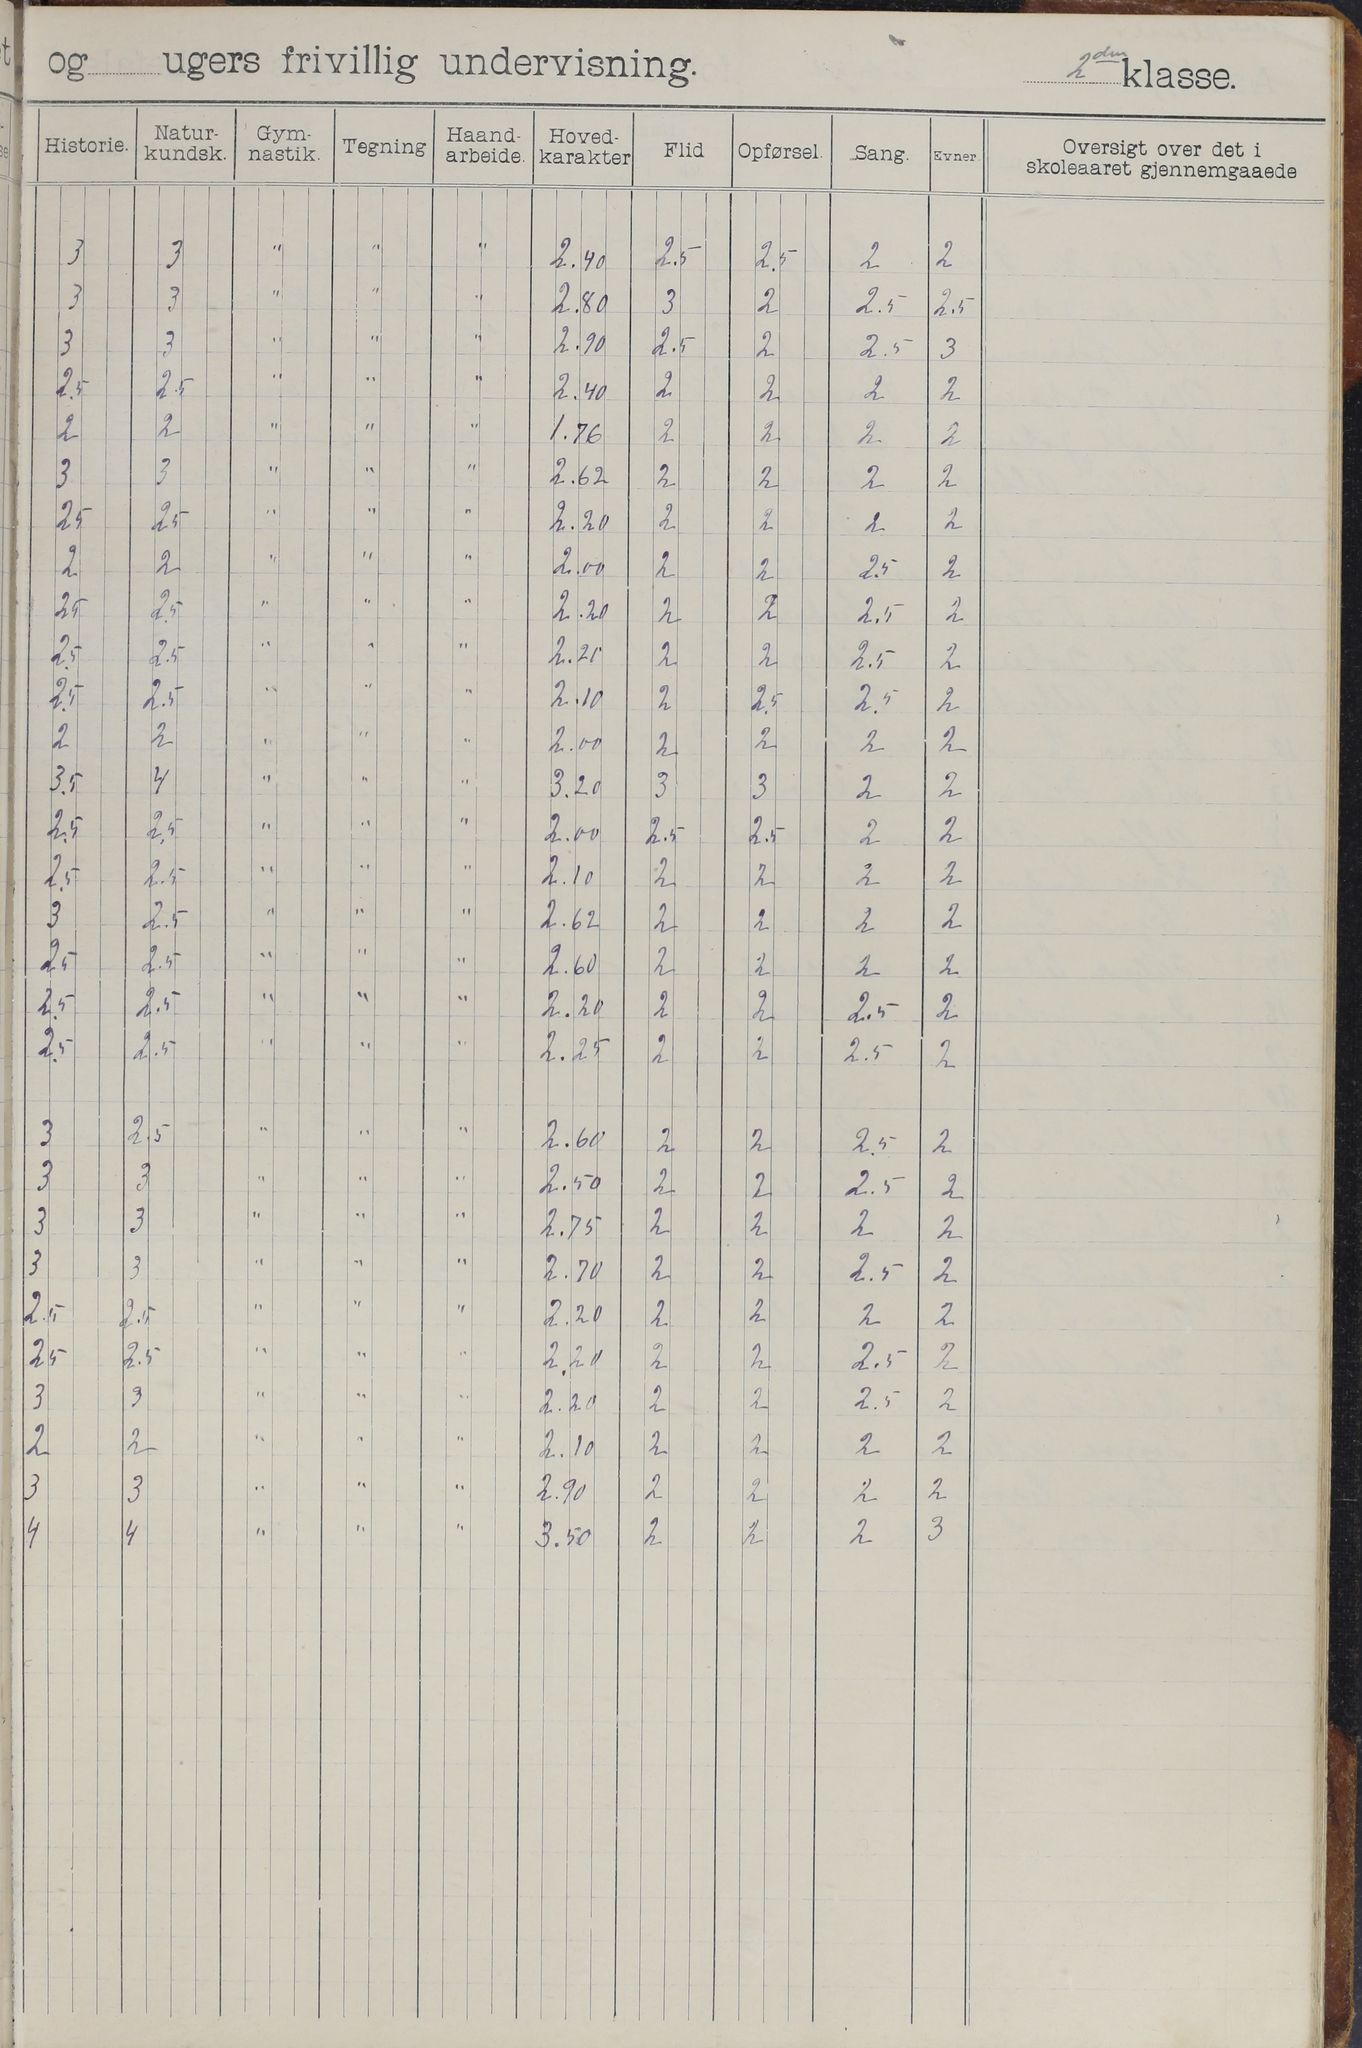 og ugers frivillig undervisning. 2den klasse.
Historie. Natur-kundsk. Gym-nastik. Tegning Haand-arbeide. Hoved-karakter Flid Opførsel. Sang. Evner. Oversigt over det i skoleaaret gjennemgaaede
3 3 " " " 2.40 2.5 2.5 2 2
3 3 " " " 2.80 3 2 2.5 2.5
3 3 " " " 2.90 2.5 2 2.5 3
2.5 2.5 " " " 2.40 2 2 2 2
2 2 " " " 1.76 2 2 2 2
3 3 " " " 2.62 2 2 2 2
25 25 " " " 2.20 2 2 2 2
2 2 " " " 2.00 2 2 2.5 2
25 2.5 " " " 2.20 2 2 2.5 2
2.5 2.5 " " " 2.20 2 2 2.5 2
2.5 2.5 " " " 2.10 2 2.5 2.5 2
2 2 " " " 2.00 2 2 2 2
3.5 4 " " " 3.20 3 3 2 2
2.5 2.5 " " " 2.00 2.5 2.5 2 2
2.5 2.5 " " " 2.10 2 2 2 2
3 2.5 " " " 2.62 2 2 2 2
25 2.5 " " " 2.60 2 2 2 2
2.5 2.5 " " " 2.20 2 2 2.5 2
2.5 2.5 " " " 2.25 2 2 2.5 2
3 2.5 " " " 2.60 2 2 2.5 2
3 3 " " " 2.50 2 2 2.5 2
3 3 " " " 2.75 2 2 2 2
3 3 " " " 2.70 2 2 2.5 2
2.5 2.5 " " " 2.20 2 2 2 2
25 2.5 " " " 2.20 2 2 2.5 2
3 3 " " " 2.20 2 2 2.5 2
2 2 " " " 2.10 2 2 2 2
3 3 " " " 2.90 2 2 2 2
4 4 " " " 3.50 2 2 2 3